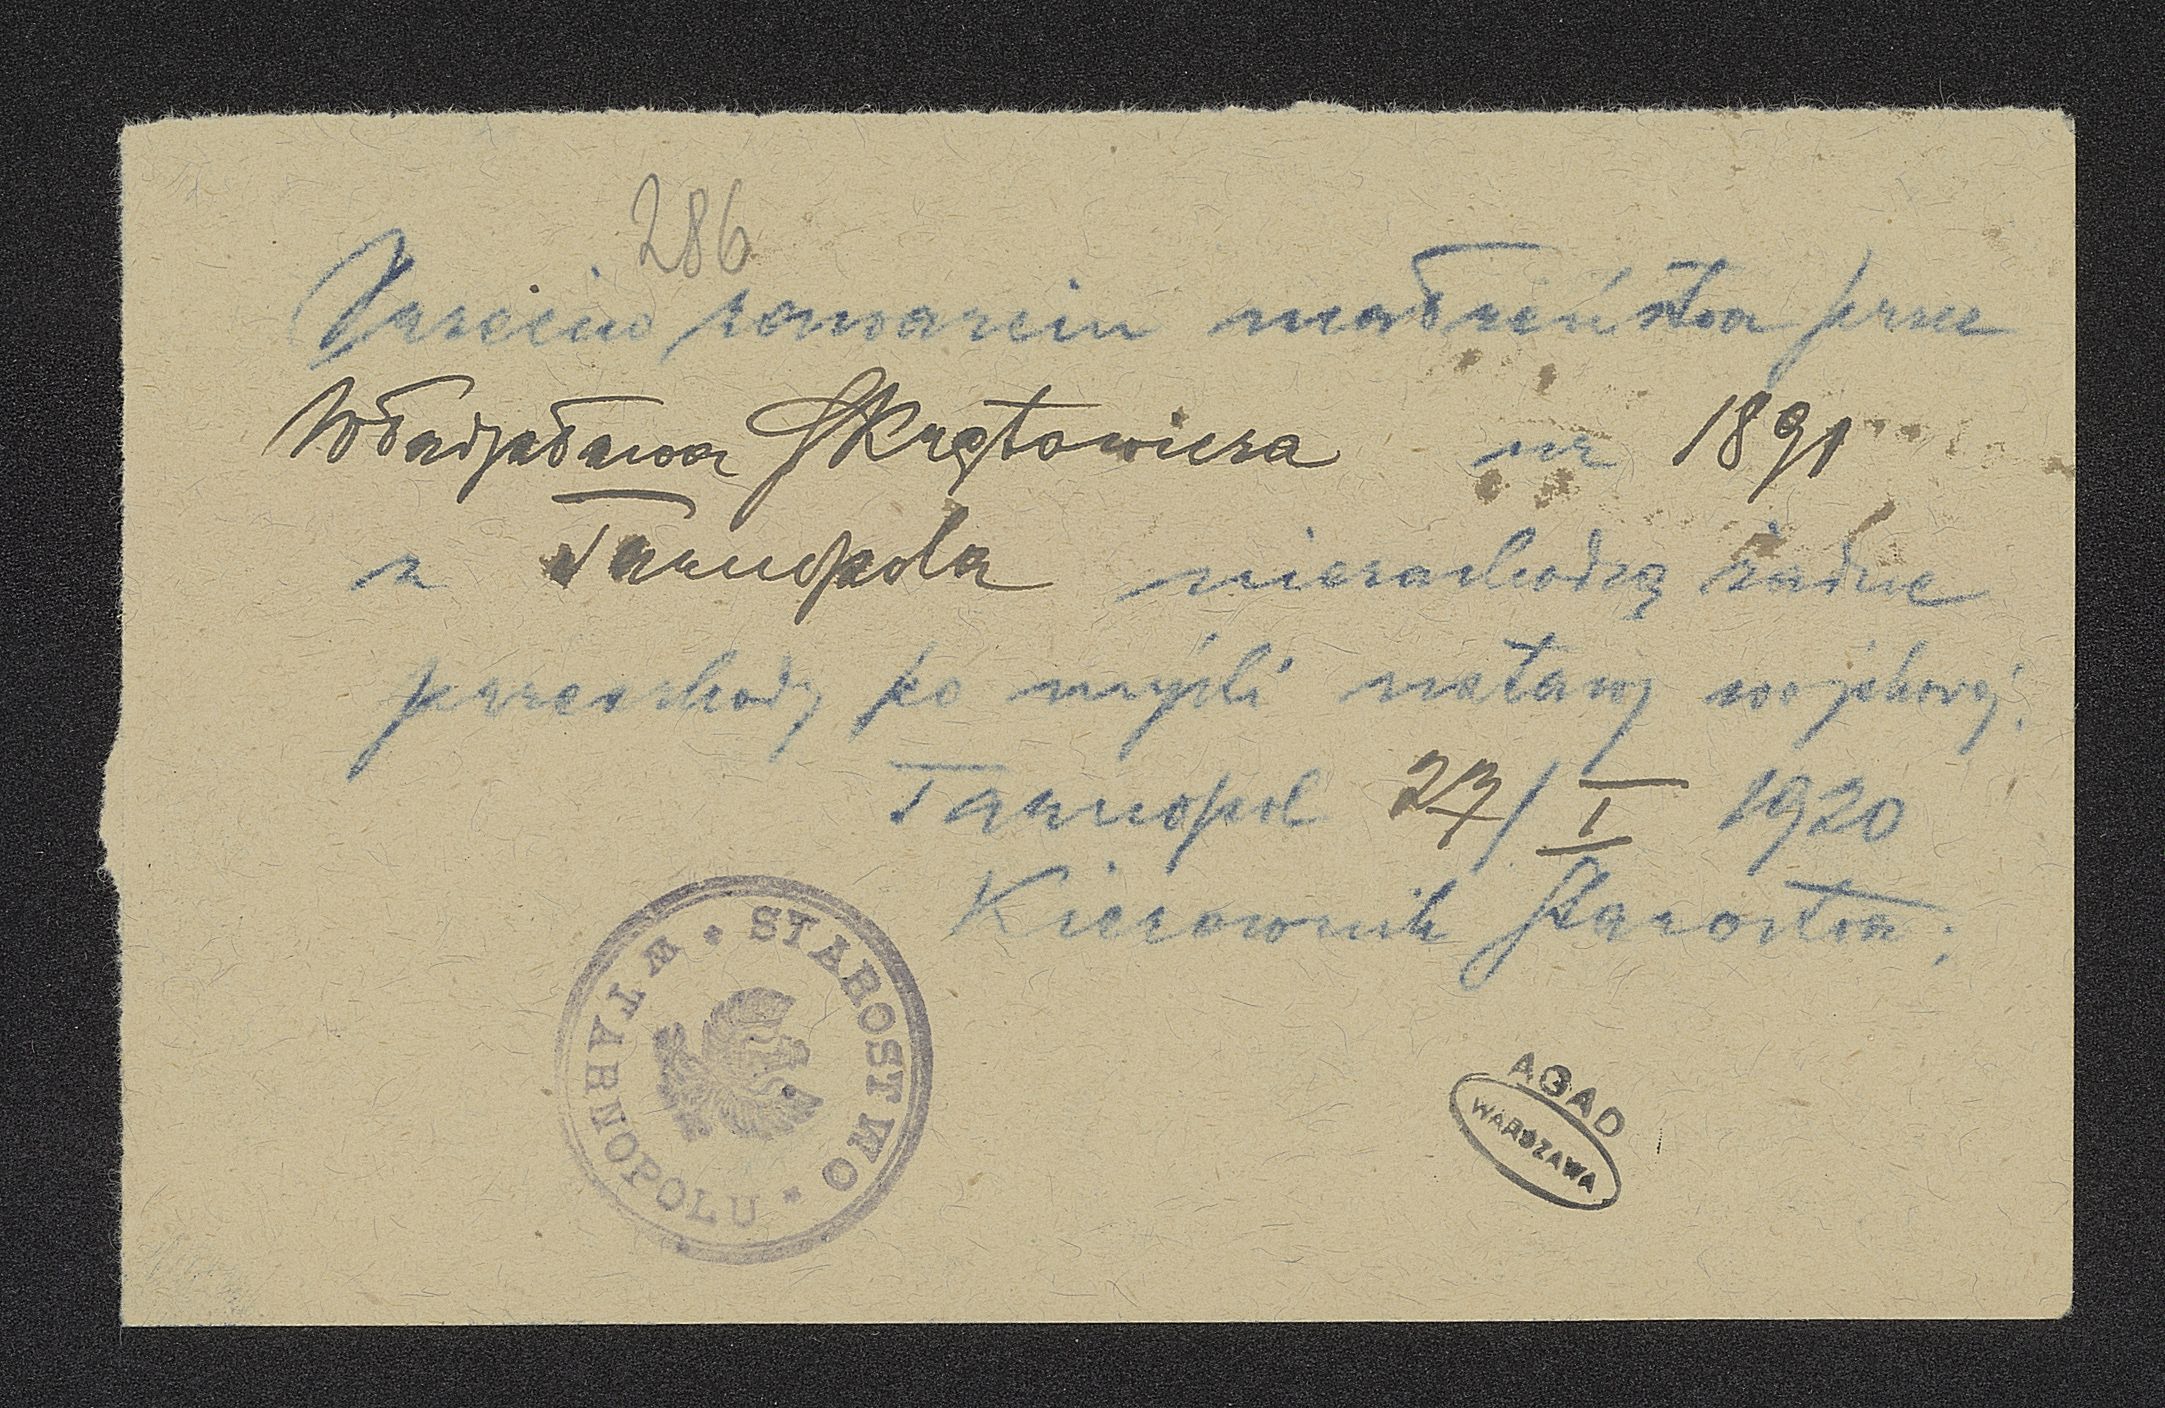 286
Przeciw zawarciu małżeństwa przez
Władysława Skrętowicza ur 1891
z Tarnopola niezachodzą żadne
przeszkody po myśli ustawy wojskowej.
Tarnopol 27/I 1920
Kierownik Starostwa:
STAROSTWO * W TARNOPOLU *
AGAD
WARSZAWA